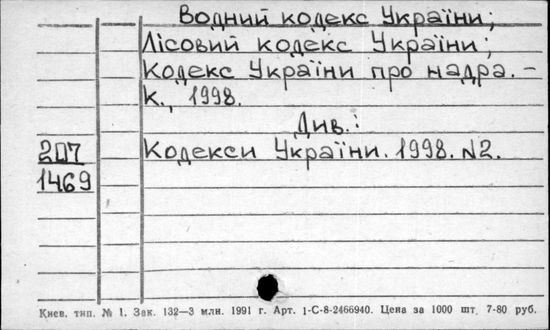 Водний кодекс України;
Лісовий кодекс України;
Кодекс України про надра. –
К., 1998.
Див.:
2П7 Кодекси України. 1998. №2.
1469
Киев. тип. № 1. Зак. 132—3 млн. 1991 г. Арт. 1-С-8-2466940. Цена за 1000 шт. 7-80 руб.